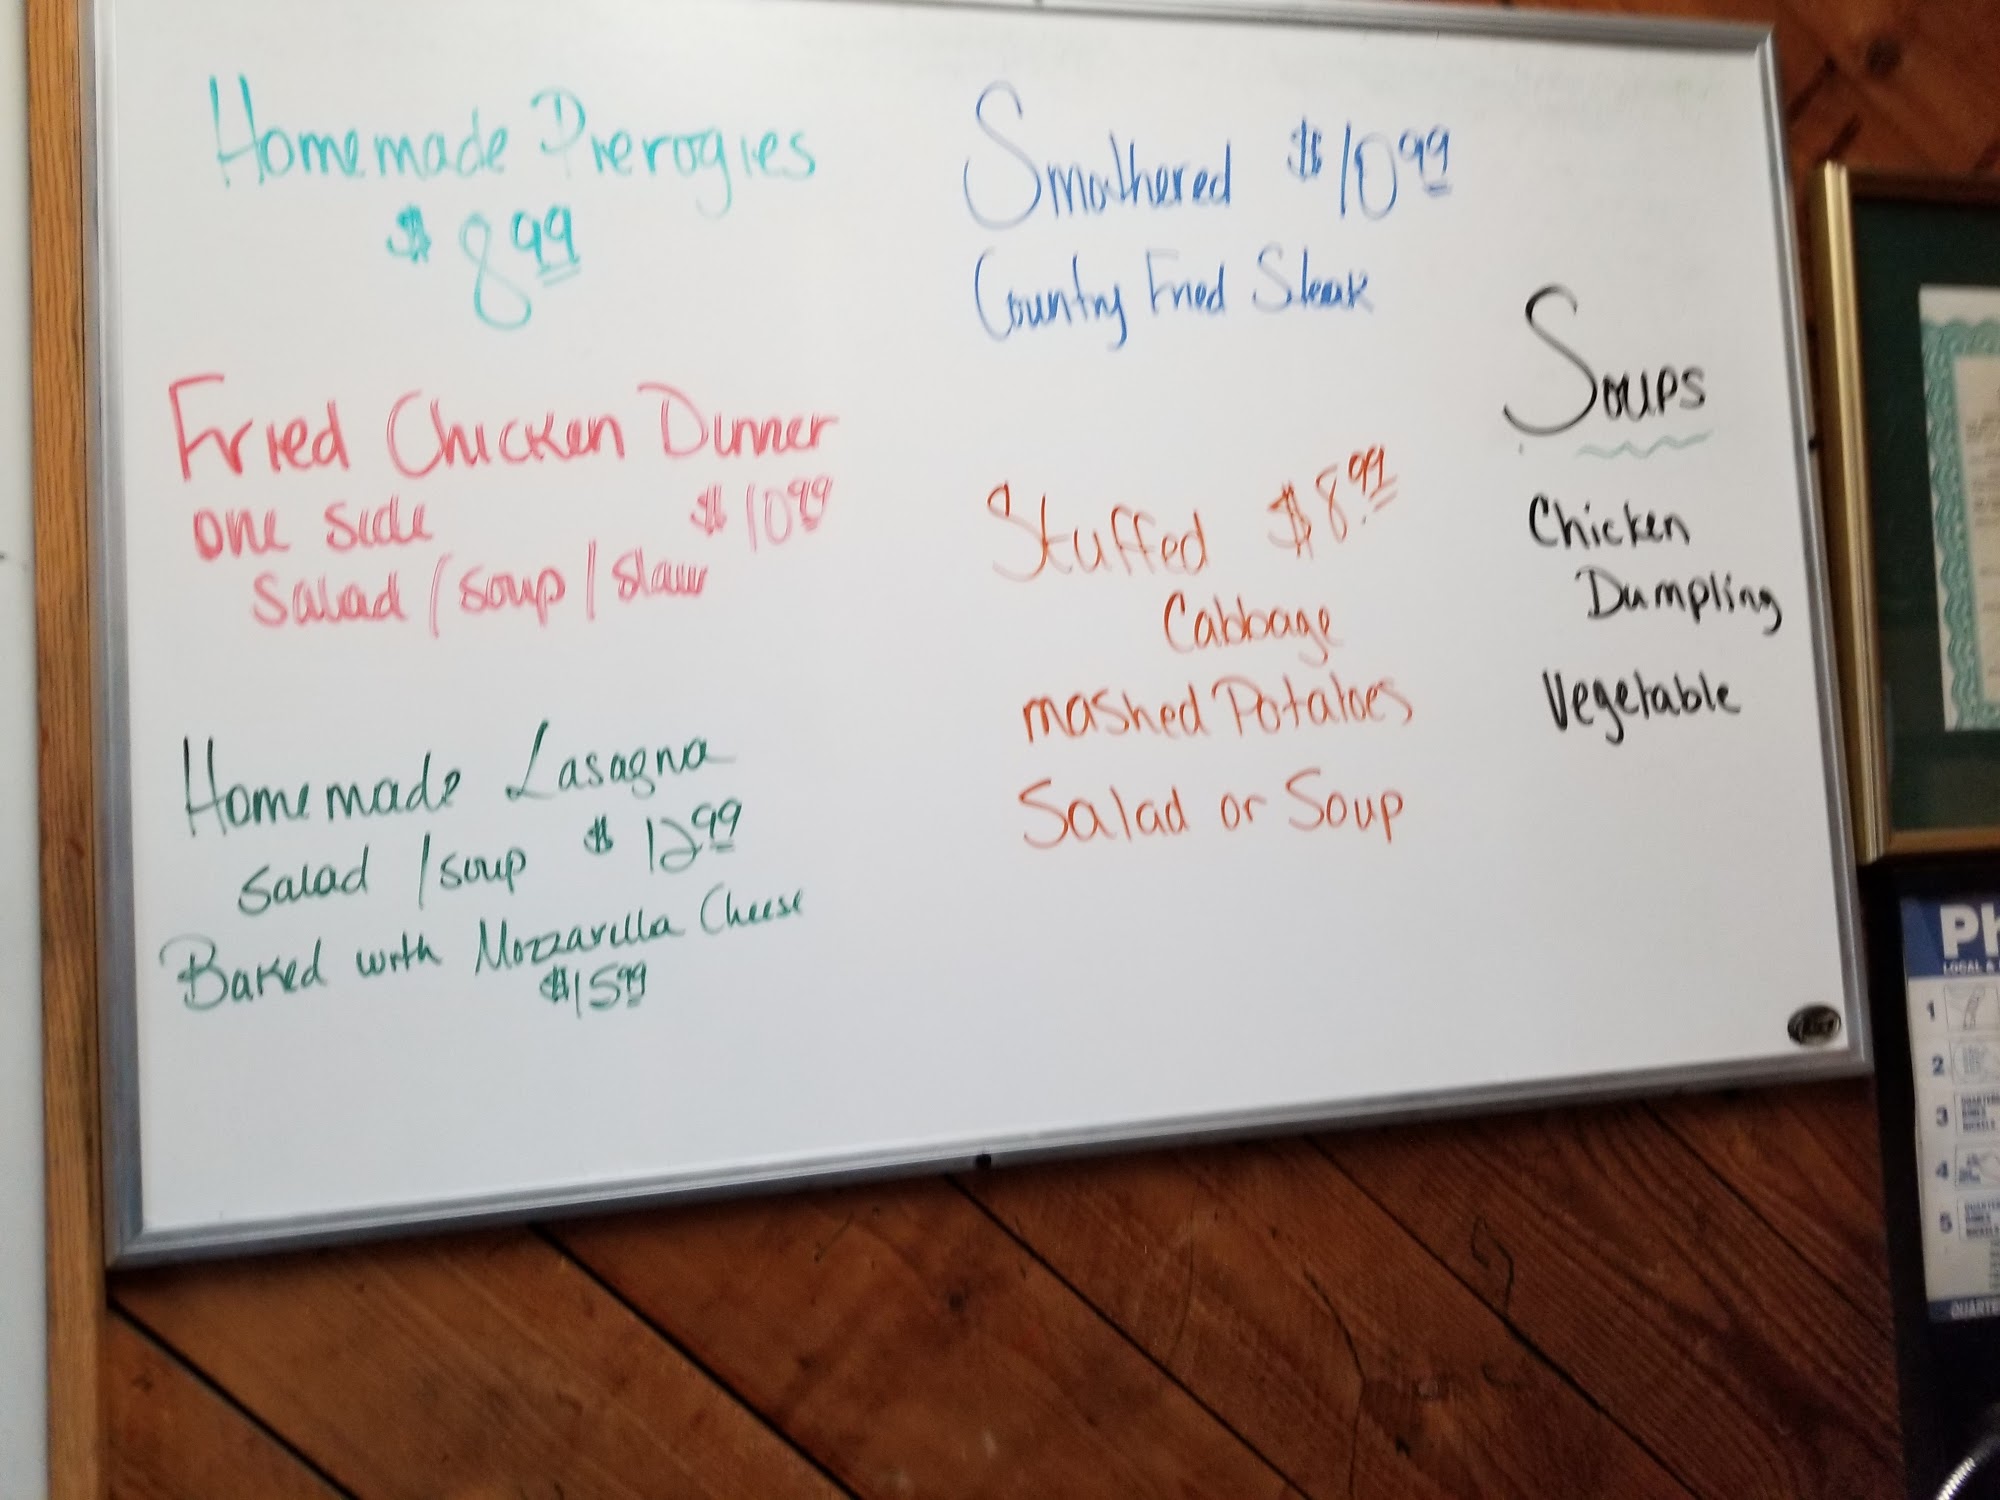 Homemade Pierogies
$8.99
Fried Chicken Dinner
one side $10.99
salad / soup / slaw
Homemade Lasagna
salad / soup $12.99
Baked with Mozzarella Cheese
$15.99
Smothered $10.99
Country Fried Steak
Stuffed $8.99
Cabbage
mashed Potatoes
Salad or Soup
Soups
Chicken
Dumpling
Vegetable
Ph
LOCAL &
1
2
3
4
5